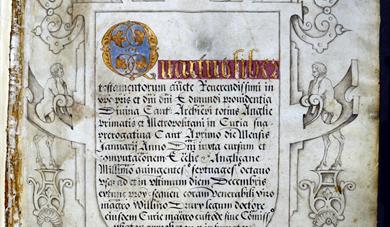 Quintus liber
testamentorum
pris et Dni Dni Edmundi providentia
Divina Cant Archiepi totius Anglie
primatis et Metropolitani in Curia sua
prerogativa Cant A primo die Mensis
Januarij Anno Dni iuxta cursum et
computaconem Ecclie Anglicane
Millimo quingentesimo septuages octavo
ad et in ultimum diem Decembris
coram venerabili viro
magro Willmo Drury legum doctore
eiusdem Curie magro custode sive Comiss